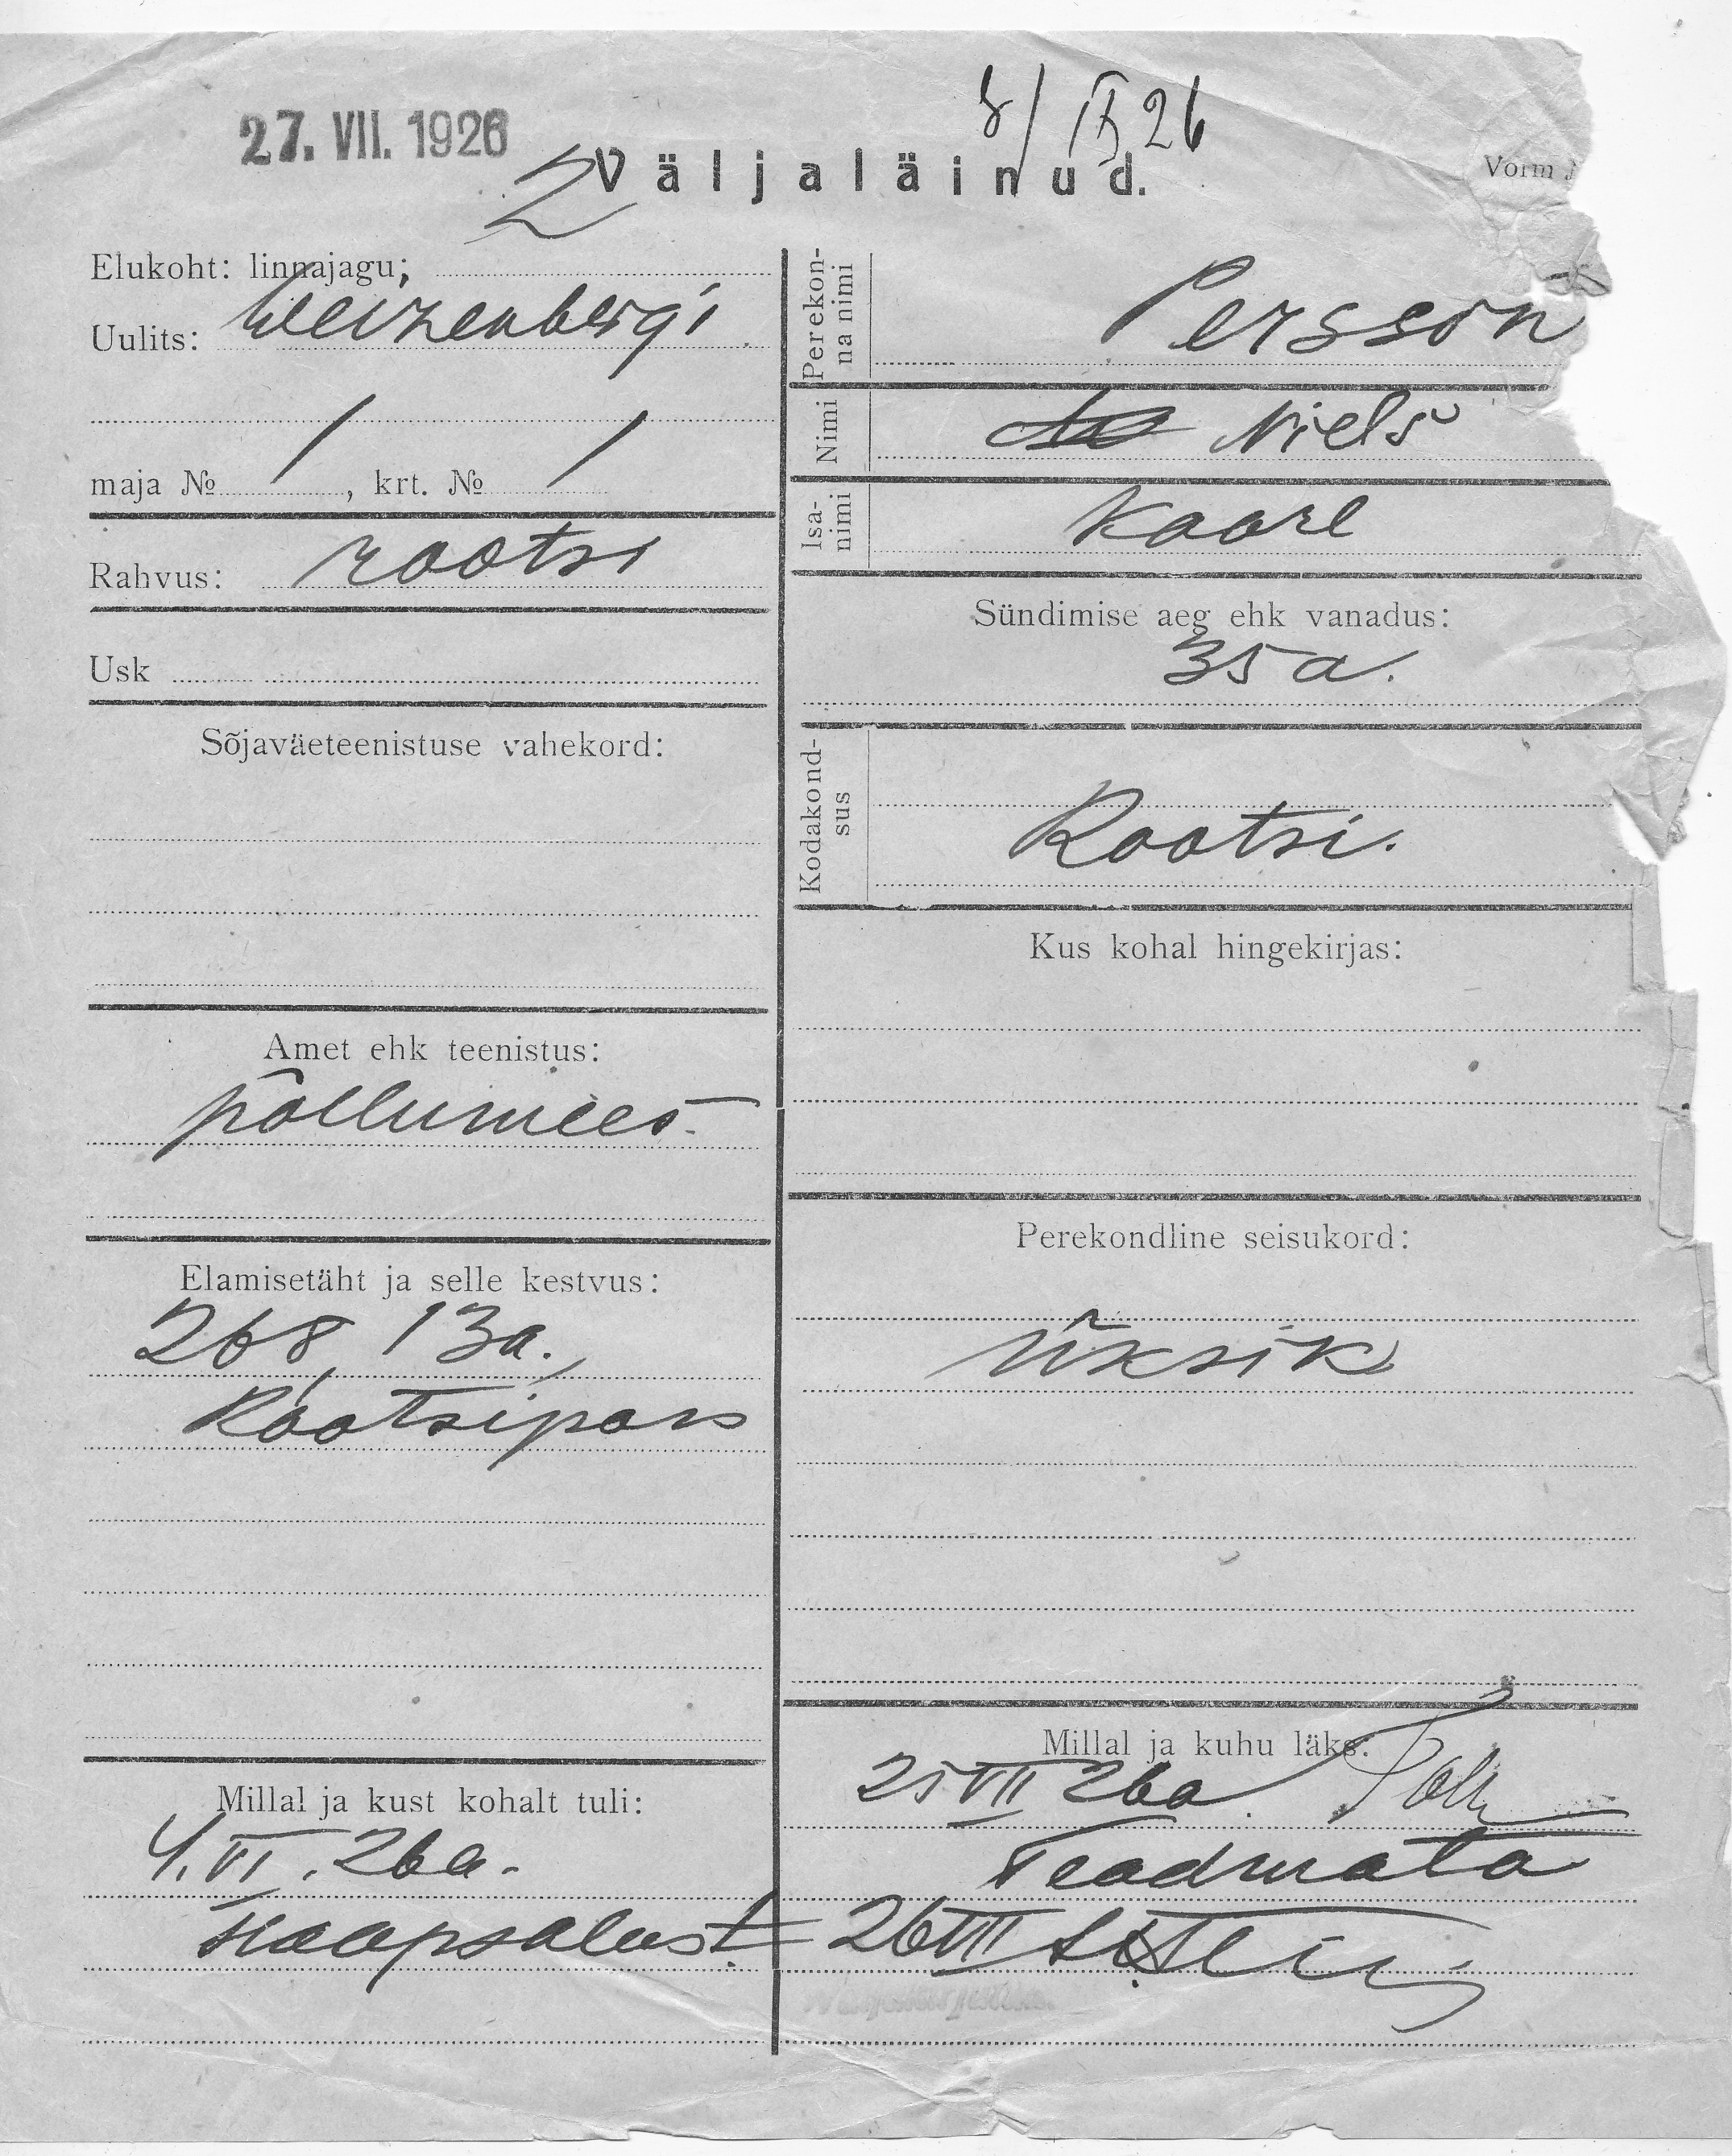 27. VII. 1926
8/IX 26
2
Väljaläinud.
Vorm
Elukoht: linnajagu;
Uulits: Weizenbergi
maja № 1, krt. № 1
Rahvus: rootsi
Usk
Sõjaväeteenistuse vahekord:
Amet ehk teenistus:
põllumees
Elamisetäht ja selle kestvus:
268, 13a.,
Rootsi pass
Millal ja kust kohalt tuli:
4. VI. 26a.
Haapsalust
Perekonna nimi
Persson
Nimi
Niels
Isanimi
Kaarl
Sündimise aeg ehk vanadus:
35 a.
Kodakondsus
Rootsi.
Kus kohal hingekirjas:
Perekondline seisukord:
üksik
Millal ja kuhu läks.
25 VII 26a.
Teadmata
26 VII